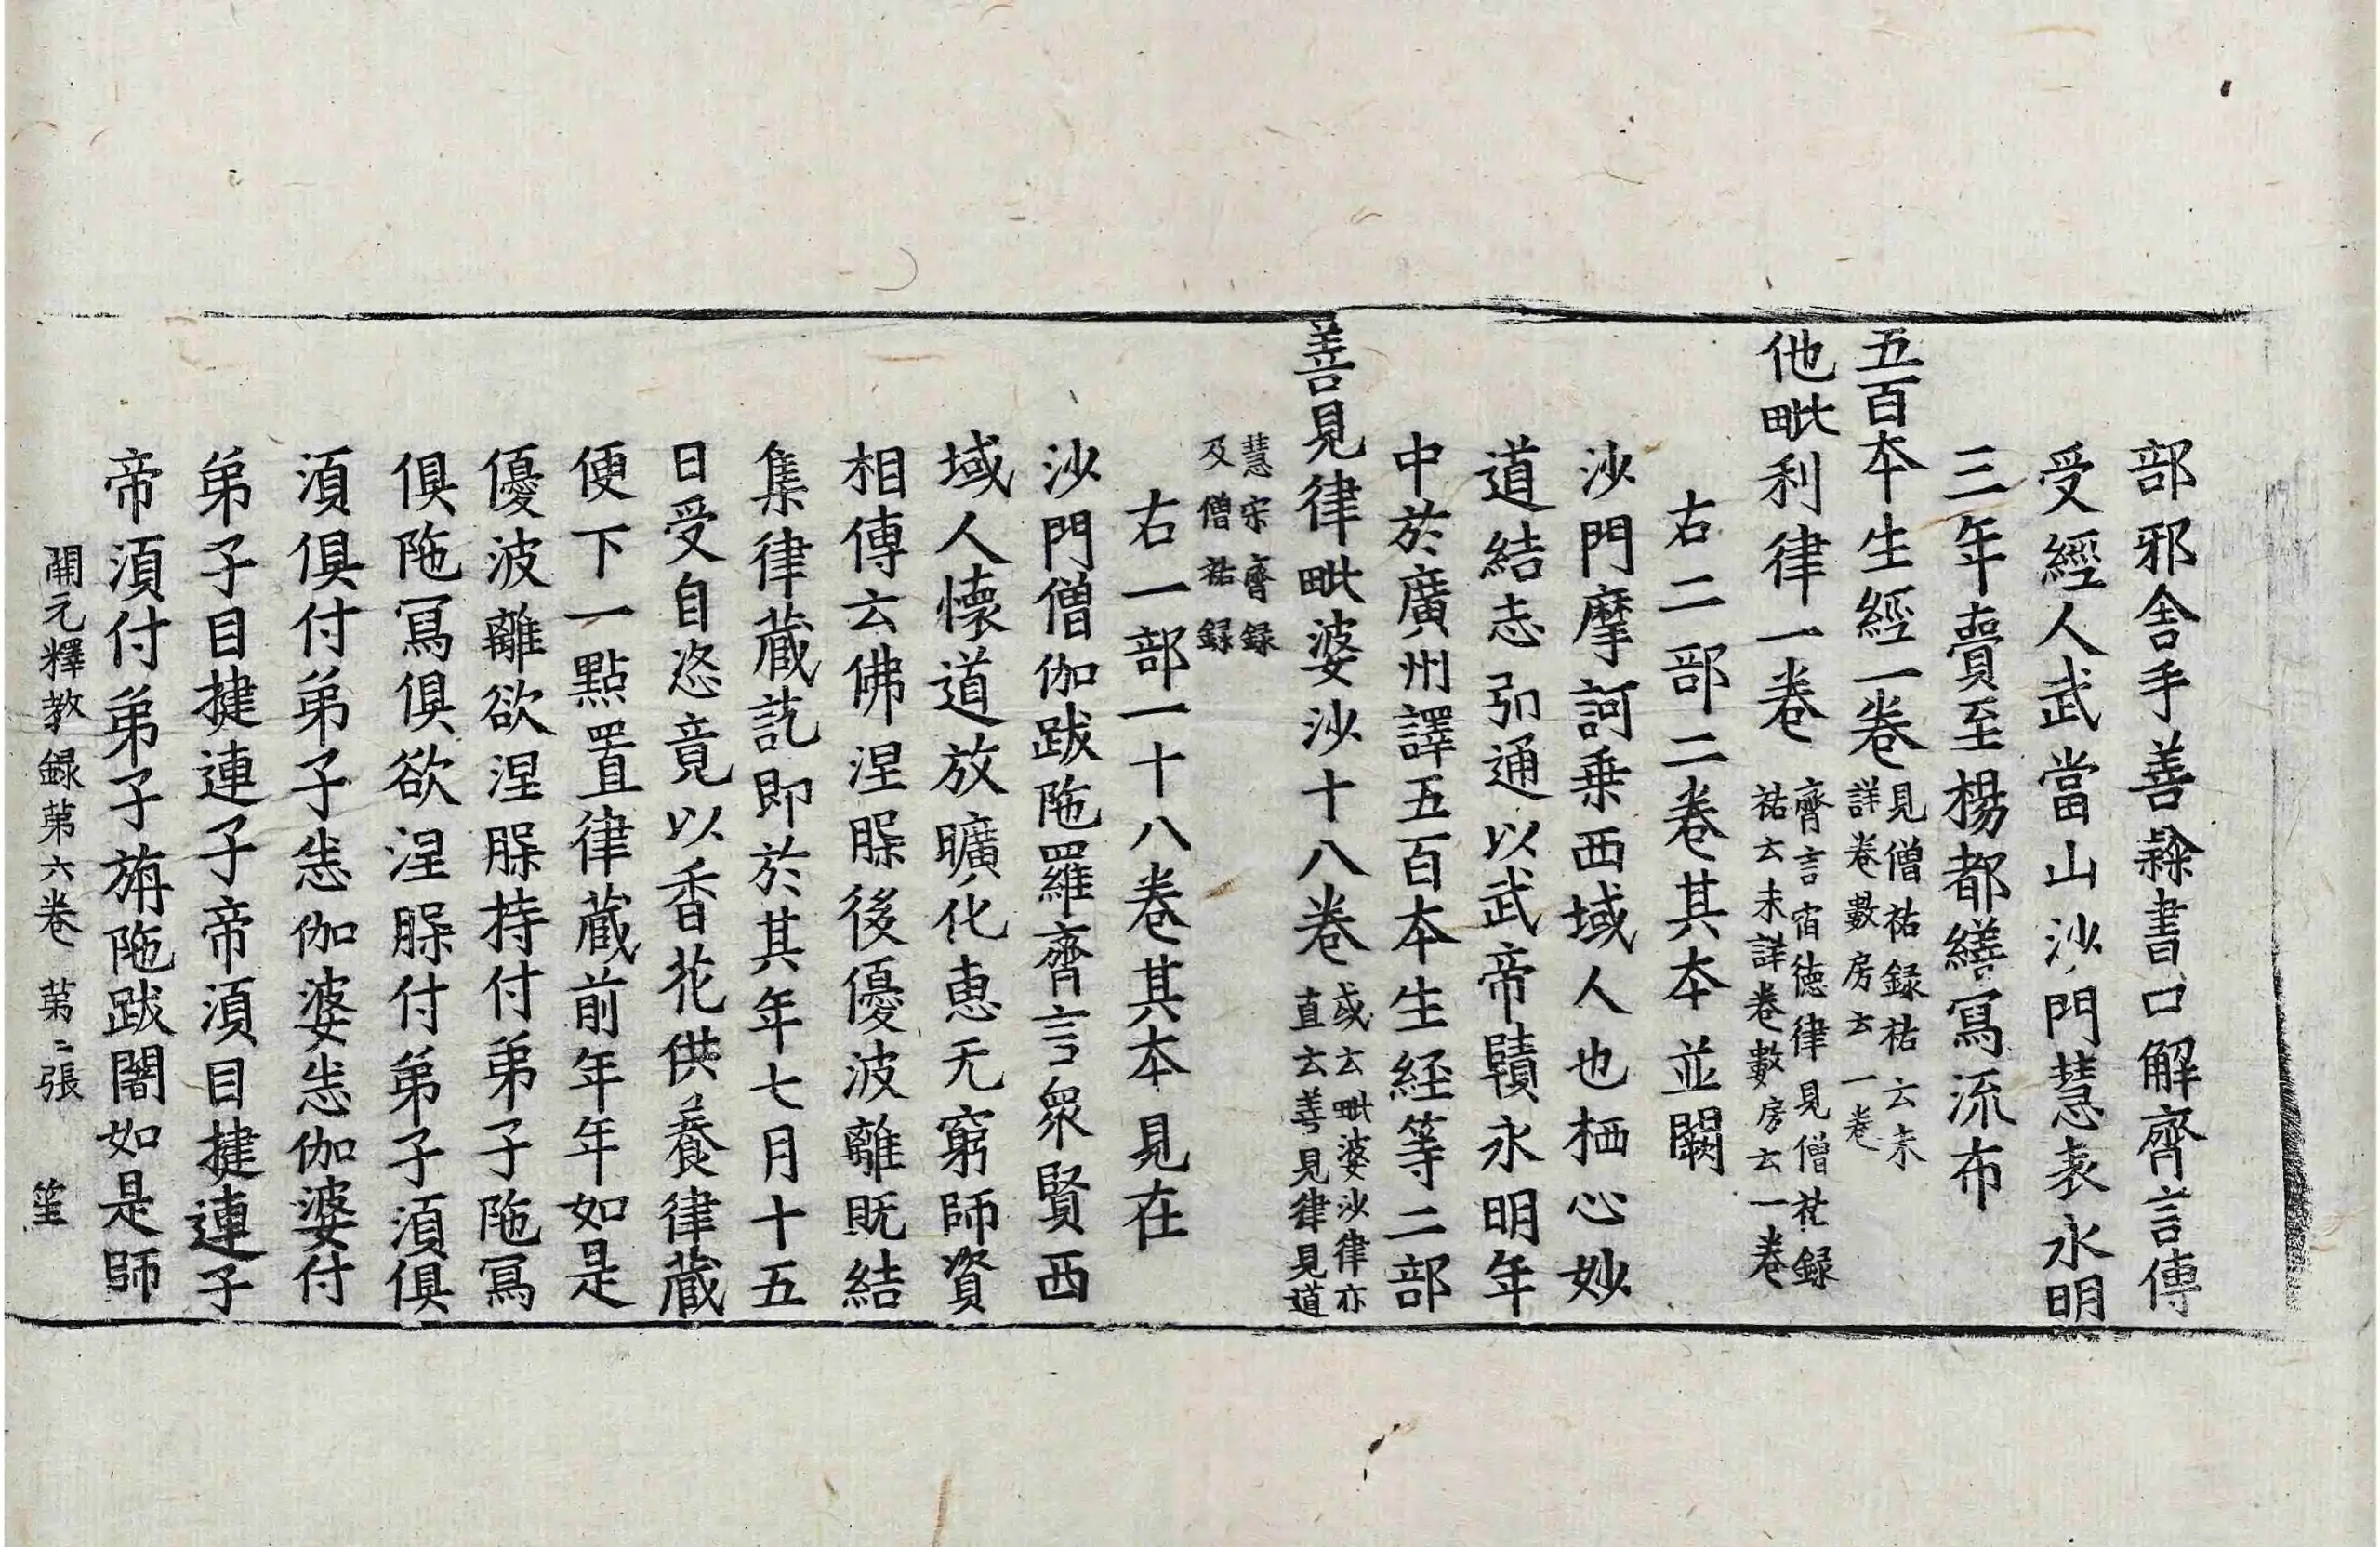 部邪舍手善隸書口解齊言傳
受經人武當山沙門慧表永明
三年賷至楊都繕寫流布
五百本生經一卷見僧祐録祐云未
詳卷數房云一卷
他毗利律一卷齊言宿德律見僧祐録
祐云未詳卷數房云一卷
右二部二卷其本並闕
沙門摩訶乗西域人也栖心妙
道結志弘通以武帝賾永明年
中於廣州譯五百本生経等二部
善見律毗婆沙十八卷或云毗婆沙律亦
直云善見律見道
慧宋齊録
及僧祐録
右一部一十八卷其本見在
沙門僧伽跋陁羅齊言衆賢西
域人懷道放曠化恵无窮師資
相傳云佛涅脲後優波離旣結
集律蔵訖即於其年七月十五
日受自恣竟以香花供養律蔵
便下一點置律蔵前年年如是
優波離欲涅脲持付弟子陁寫
俱陁寫俱欲涅脲付弟子湏俱
湏俱付弟子悉伽婆悉伽婆付
弟子目揵連子帝湏目揵連子
帝湏付弟子旃陁跋闍如是師
開元釋教録苐六卷 苐二張 笙